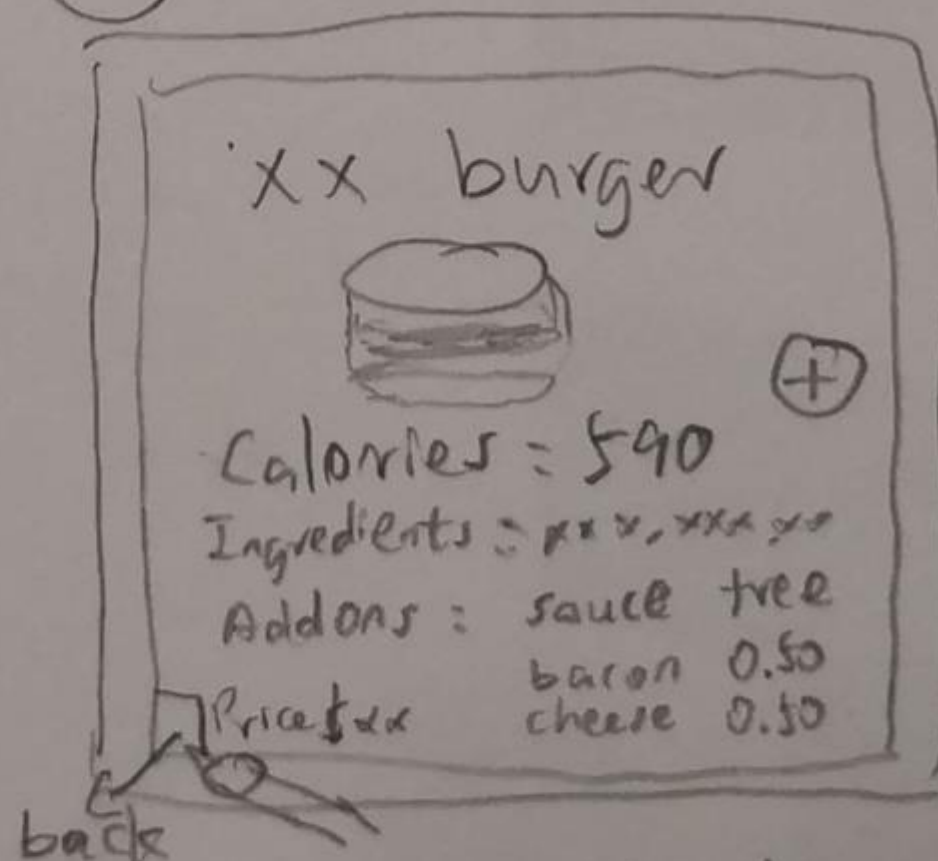 xx burger
+
Calories : 590
Ingredients : xxx, xxx, xx
Addons : sauce free
bacon 0.50
Price $xx cheese 0.50
back